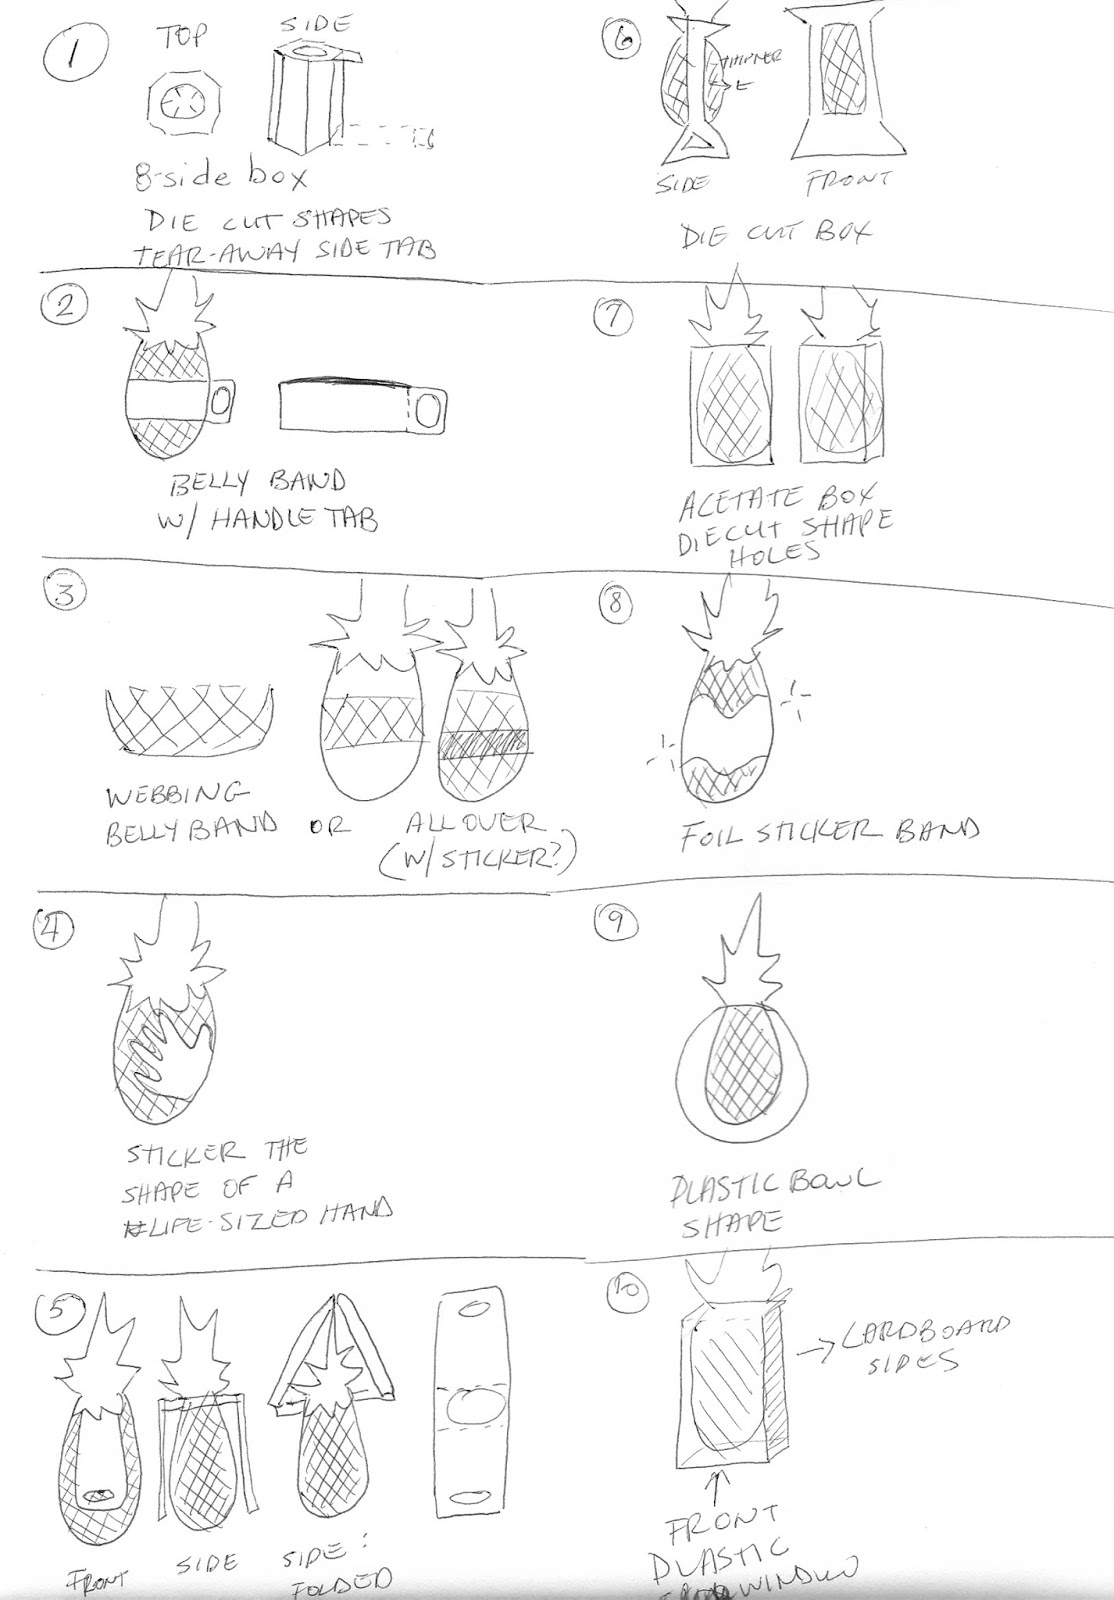 1
TOP
SIDE
8-side box
DIE CUT SHAPES
TEAR-AWAY SIDE TAB
2
BELLY BAND
W/ HANDLE TAB
3
WEBBING
BELLY BAND OR ALL OVER
(W/ STICKER?)
4
STICKER THE
SHAPE OF A
LIFE-SIZED HAND
5
FRONT
SIDE
SIDE:
FOLDED
6
THINNER
SIDE
FRONT
DIE CUT BOX
7
ACETATE BOX
DIECUT SHAPE
HOLES
8
FOIL STICKER BAND
9
PLASTIC BOWL
SHAPE
10
CARDBOARD
SIDES
FRONT
PLASTIC
WINDOW